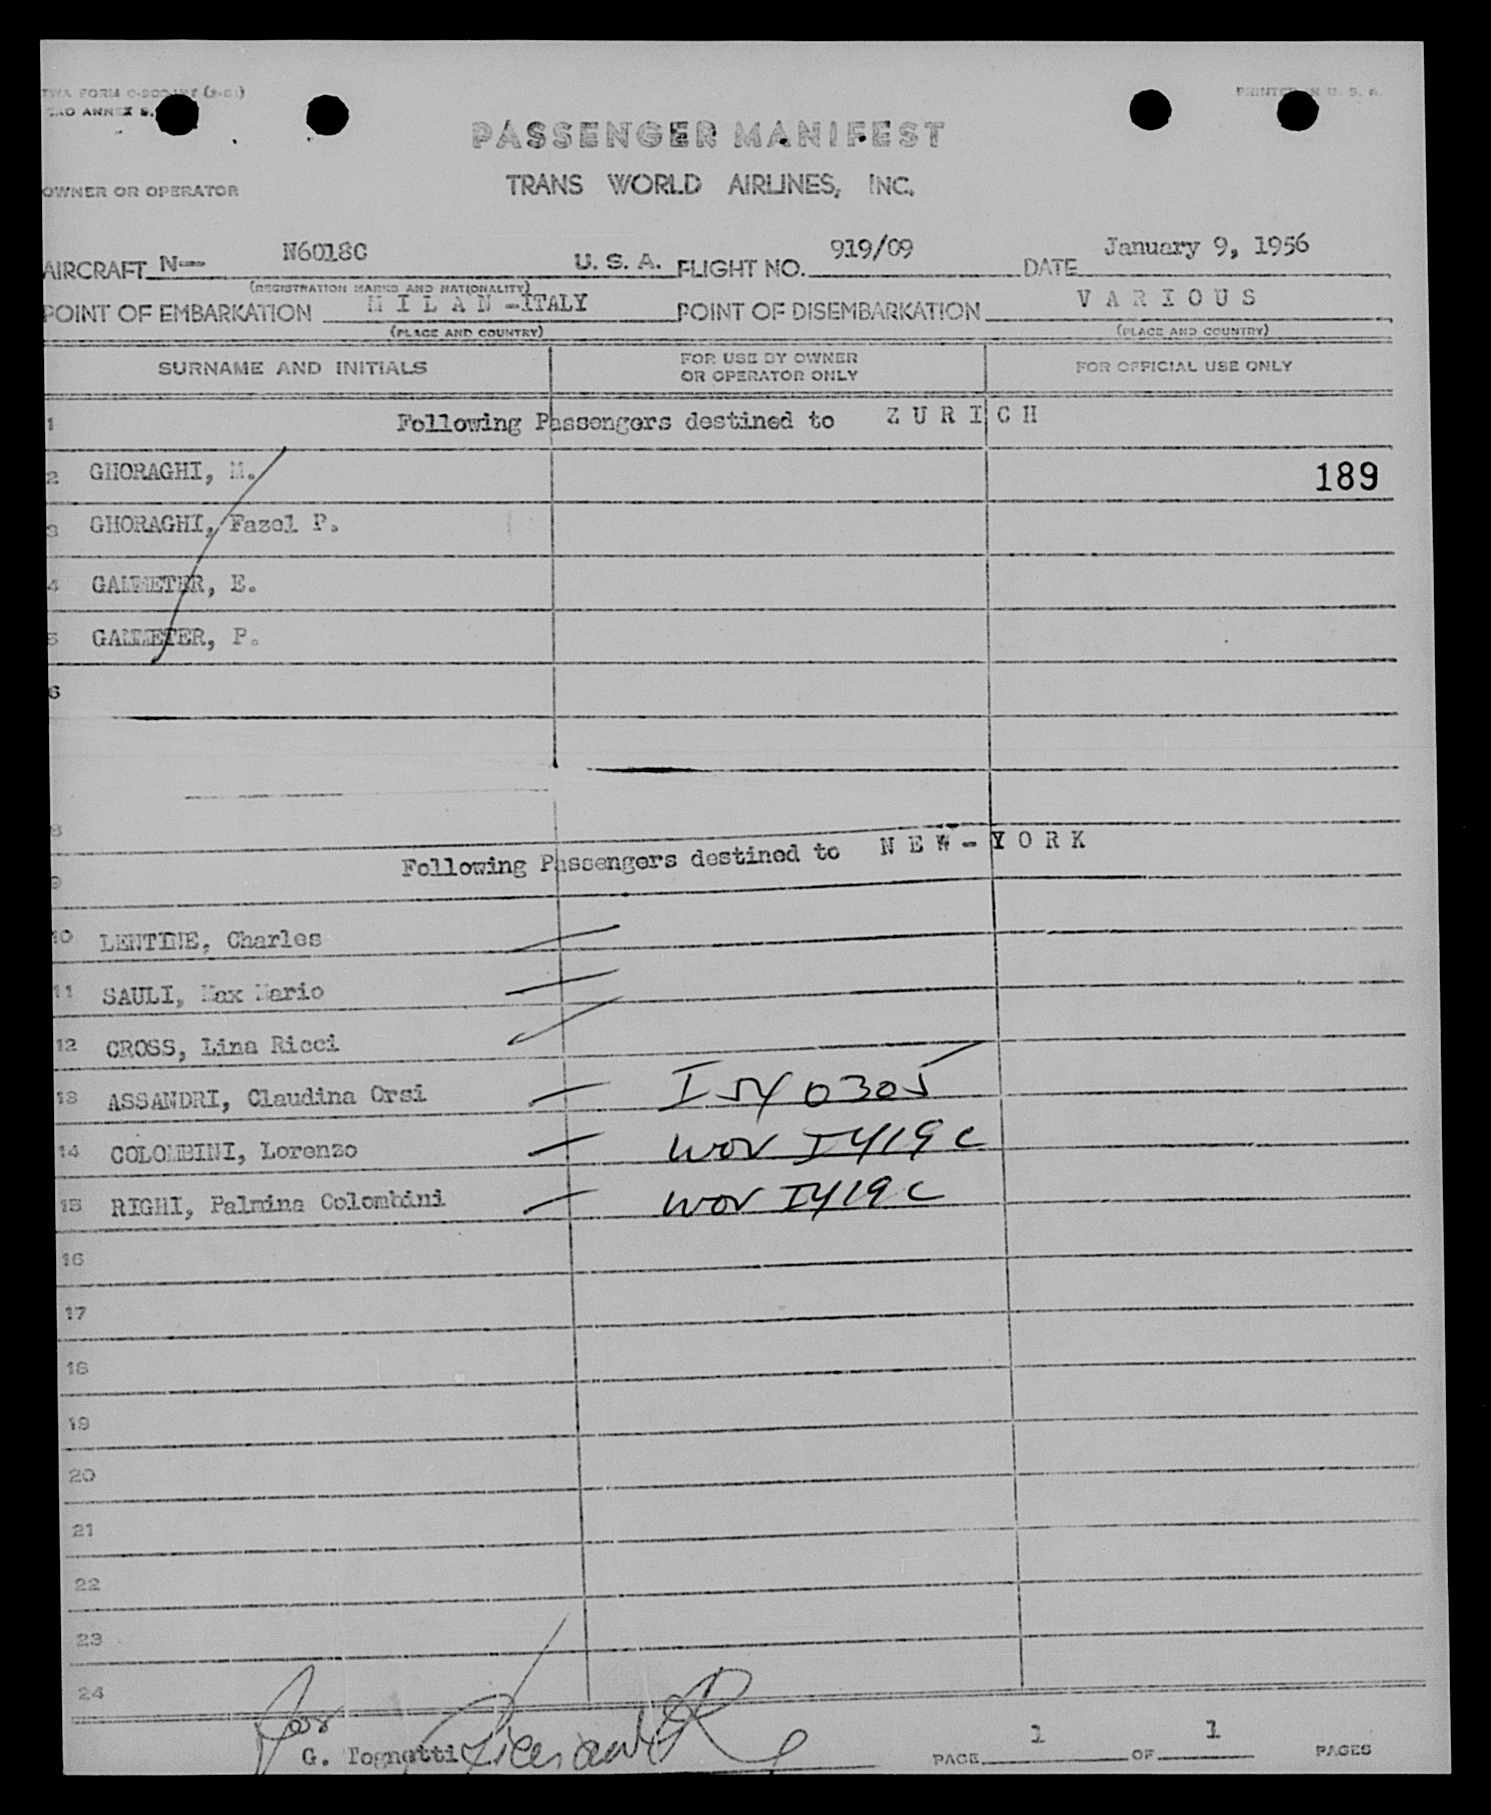 PRINTED IN U. S. A.
PASSENGER MANIFEST
TRANS WORLD AIRLINES, INC.
OWNER OR OPERATOR
AIRCRAFT N— N6018C U. S. A. FLIGHT NO. 919/09 DATE January 9, 1956
(REGISTRATION MARKS AND NATIONALITY)
POINT OF EMBARKATION M I L A N -ITALY POINT OF DISEMBARKATION V A R I O U S
(PLACE AND COUNTRY) (PLACE AND COUNTRY)
SURNAME AND INITIALS FOR USE BY OWNER OR OPERATOR ONLY FOR OFFICIAL USE ONLY
1 Following Passengers destined to Z U R I C H
2 GHORAGHI, M. 189
3 GHORAGHI, Fazel P.
4 GAMMETER, E.
5 GAMMETER, P.
6
8
Following Passengers destined to N E W - Y O R K
9
10 LENTINE, Charles
11 SAULI, Max Mario
12 CROSS, Lina Ricci
13 ASSANDRI, Claudina Orsi
14 COLOMBINI, Lorenzo WOV I419 C
15 RIGHI, Palmina Colombini WOV I419 C
16
17
18
19
20
21
22
23
24
for
G. Tognetti
PAGE 1 OF 1 PAGES